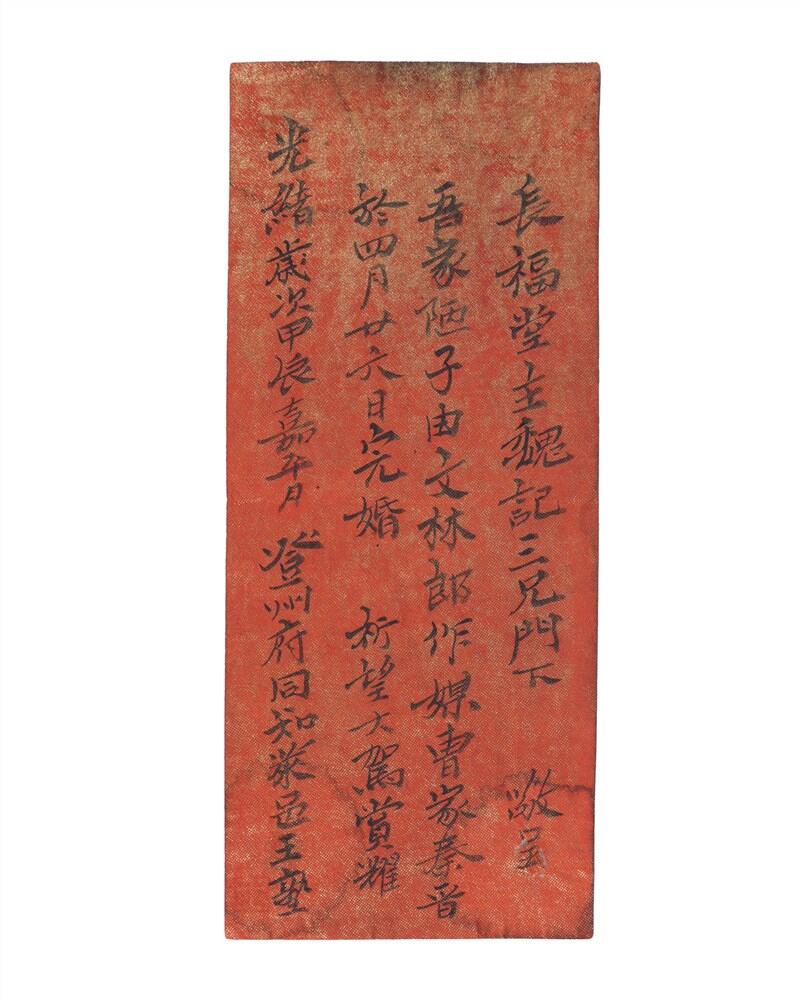 長福堂主魏記三兄門下 敬呈
吾家陋子由文林郎作媒曹家秦晋
於四月廿六日完婚 祈望大駕賞耀
光緒歲次甲辰嘉平月 登州府同知萊邑王塾